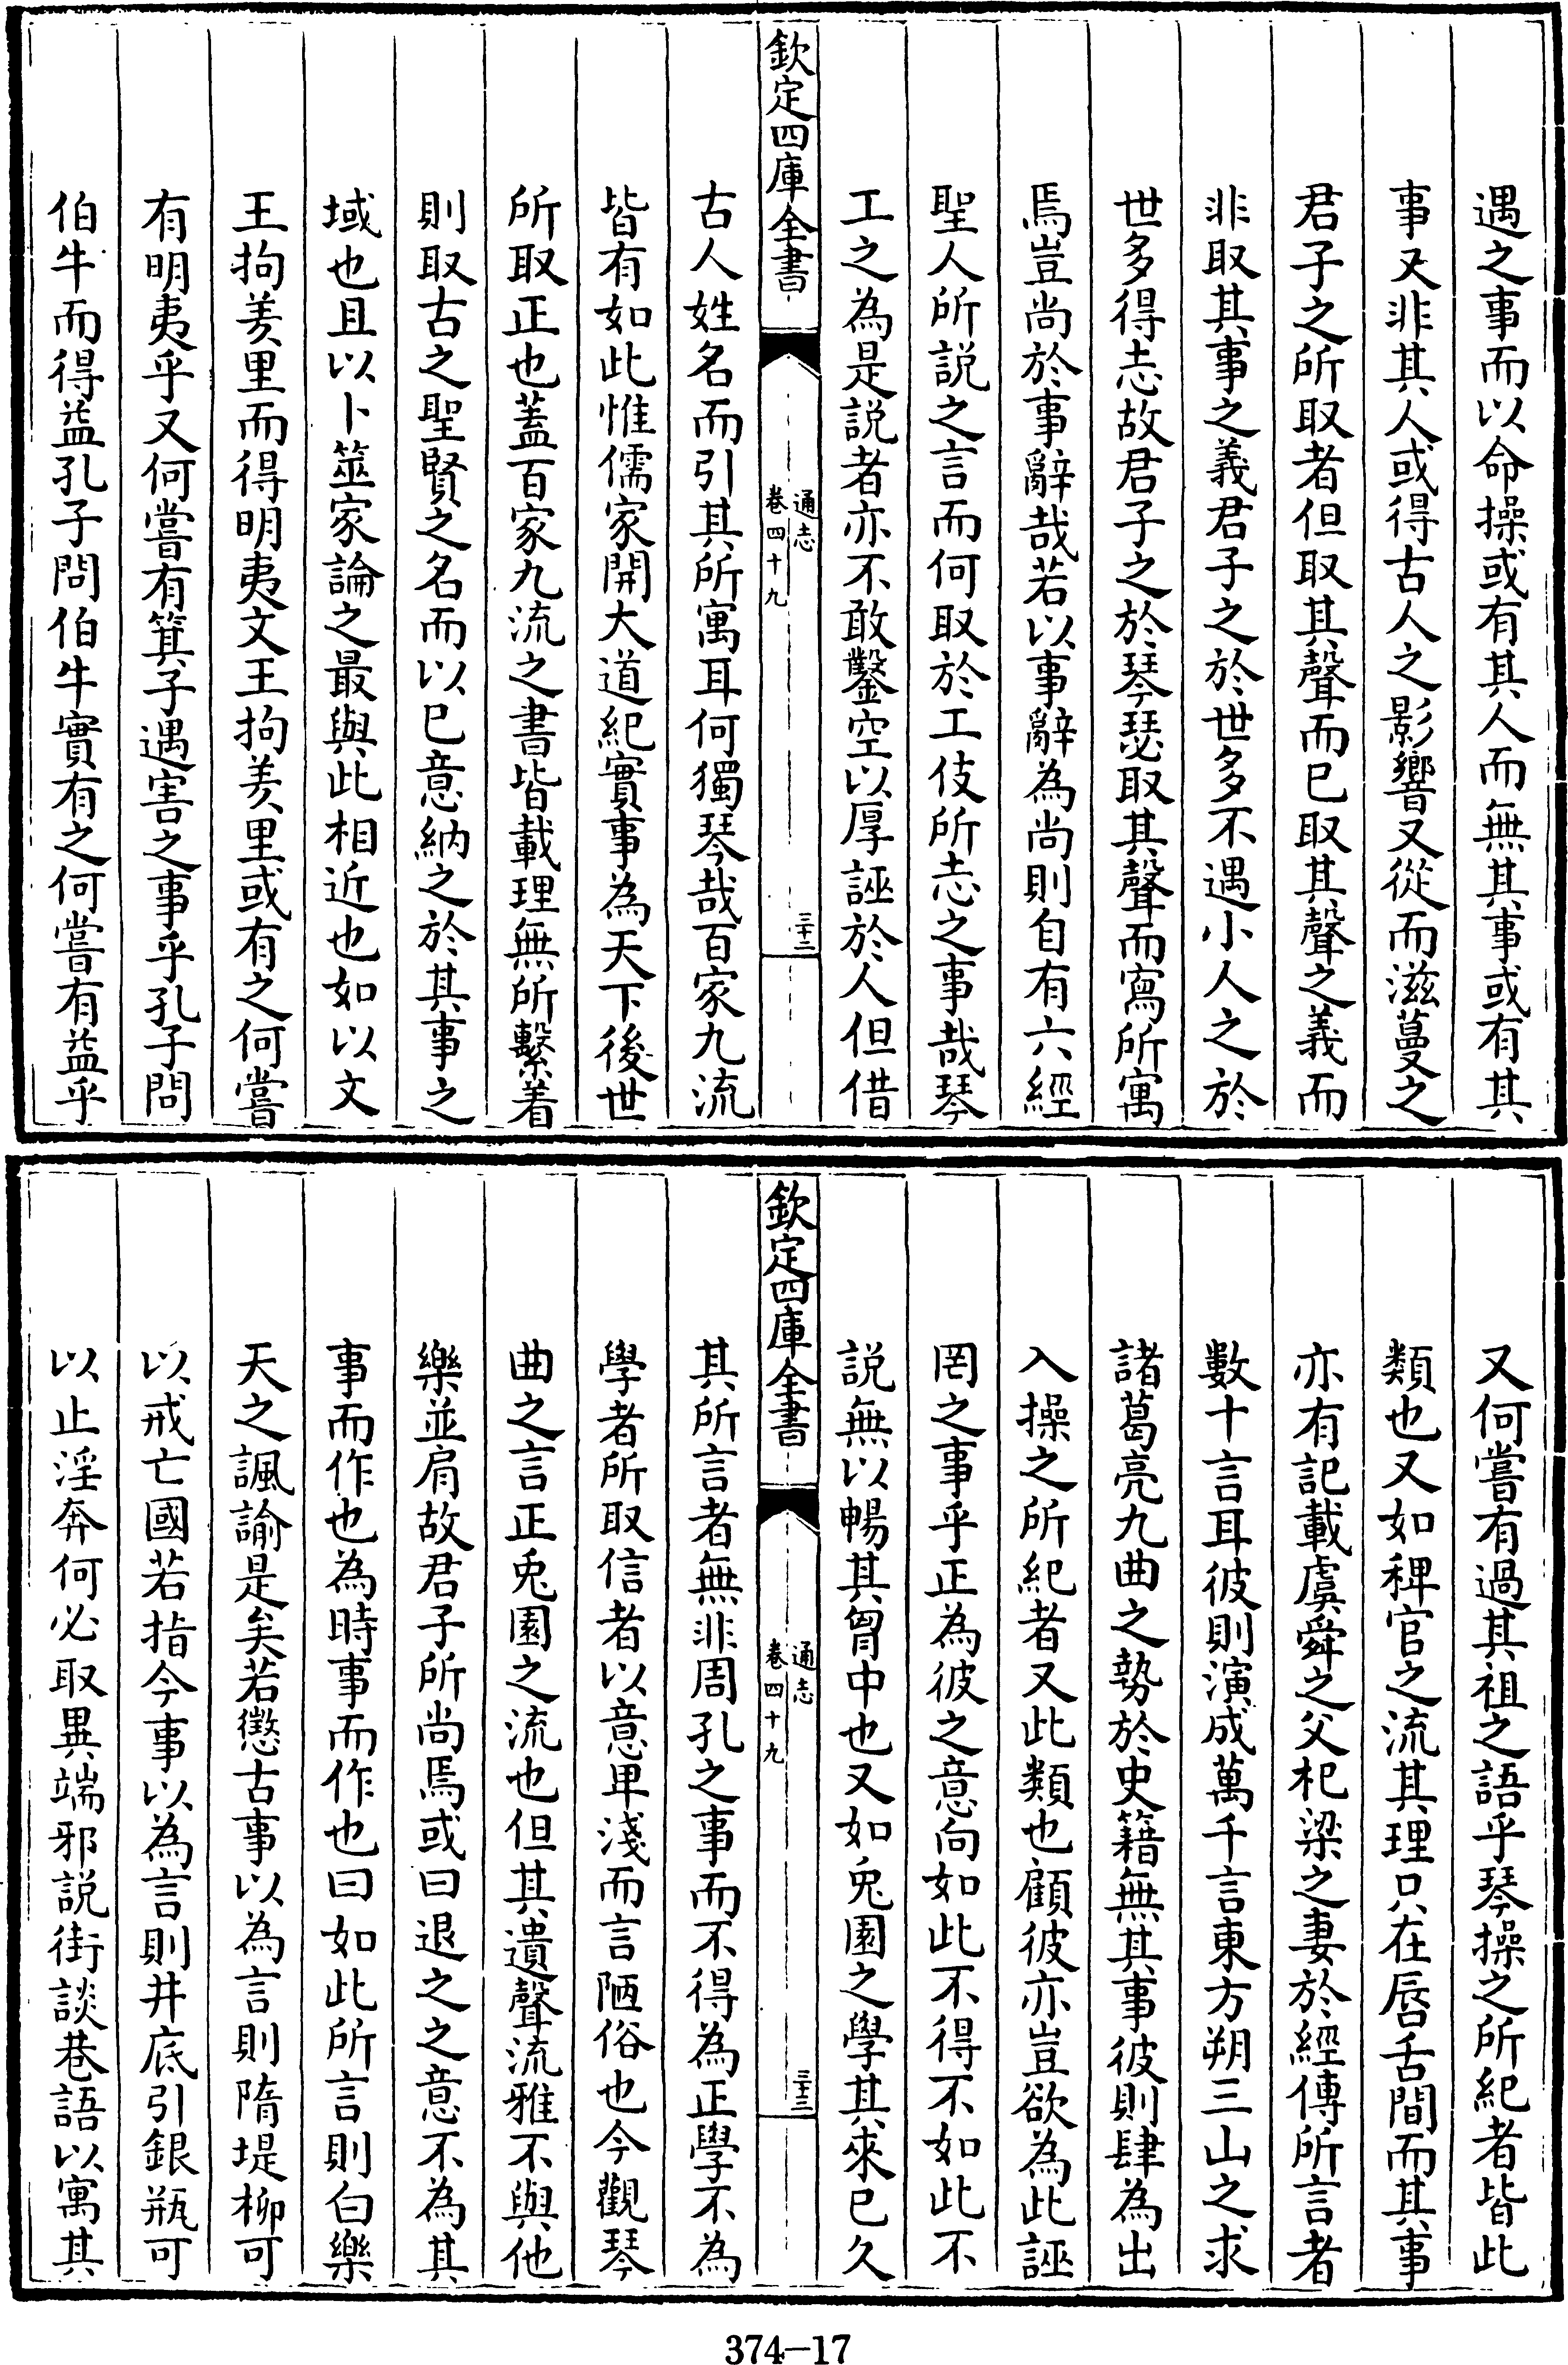 遇之事而以命操或有其人而無其事或有其
事又非其人或得古人之影響又從而滋蔓之
君子之所取者但取其聲而已取其聲之義而
非取其事之義君子之於世多不遇小人之於
世多得志故君子之於琴瑟取其聲而寫所寓
焉豈尚於事辭哉若以事辭為尚則自有六經
聖人所説之言而何取於工伎所志之事哉琴
工之為是説者亦不敢鑿空以厚誣於人但借
欽定四庫全書
通志
卷四十九
三十二
古人姓名而引其所寓耳何獨琴哉百家九流
皆有如此惟儒家開大道紀實事為天下後世
所取正也蓋百家九流之書皆載理無所繫着
則取古之聖賢之名而以已意納之於其事之
域也且以卜筮家論之最與此相近也如以文
王拘羑里而得明夷文王拘羑里或有之何嘗
有明夷乎又何嘗有箕子遇害之事乎孔子問
伯牛而得益孔子問伯牛實有之何嘗有益乎
又何嘗有過其祖之語乎琴操之所紀者皆此
類也又如稗官之流其理只在唇舌間而其事
亦有記載虞舜之父杞梁之妻於經傳所言者
數十言耳彼則演成萬千言東方朔三山之求
諸葛亮九曲之勢於史籍無其事彼則肆為出
入操之所紀者又此類也顧彼亦豈欲為此誣
罔之事乎正為彼之意向如此不得不如此不
説無以暢其胷中也又如兎園之學其來已久
欽定四庫全書
通志
卷四十九
三十三
其所言者無非周孔之事而不得為正學不為
學者所取信者以意卑淺而言陋俗也今觀琴
曲之言正兎園之流也但其遺聲流雅不與他
樂並肩故君子所尚焉或曰退之之意不為其
事而作也為時事而作也曰如此所言則白樂
天之諷諭是矣若懲古事以為言則隋堤柳可
以戒亡國若指今事以為言則井底引銀瓶可
以止淫奔何必取異端邪説街談巷語以寓其
374-17